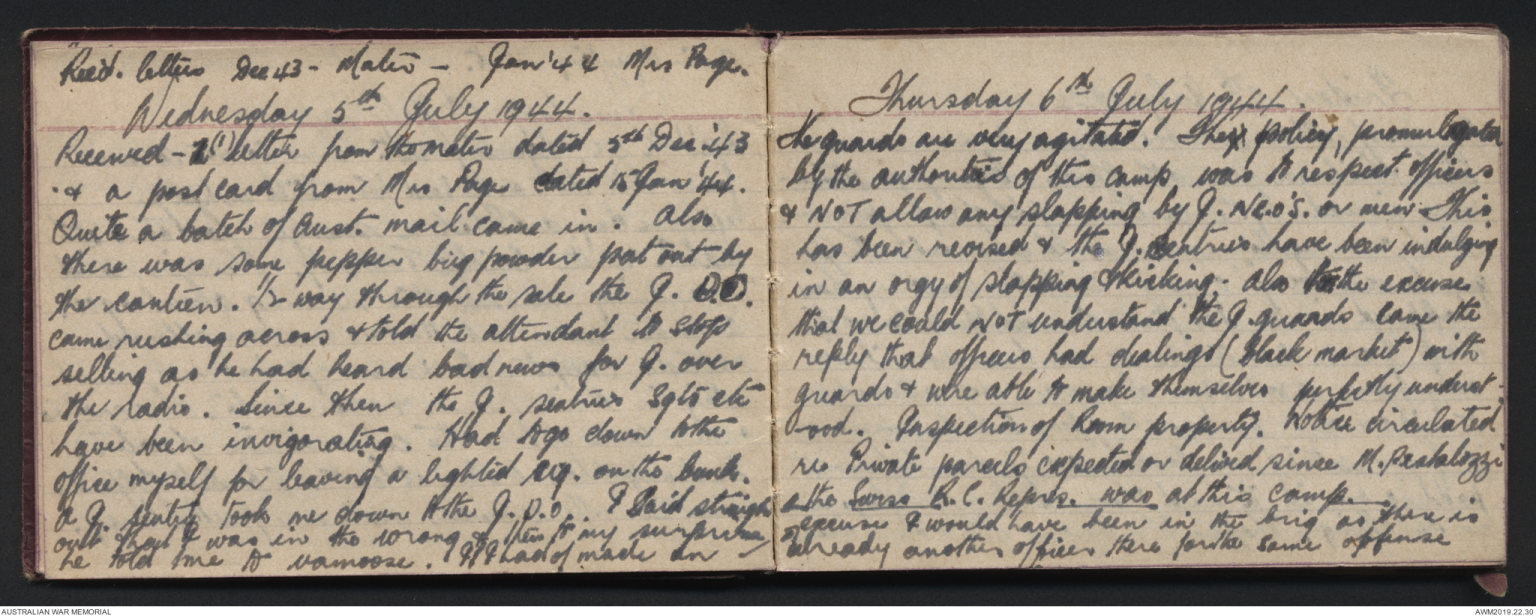 Rec'd. letters Dec 43 - Mater - Jan '44 Mrs Page.
Wednesday 5th July 1944.
Received - 1 (1) letter from the mater dated 5th Dec '43
& a post card from Mrs Page dated 15 Jan '44.
Quite a batch of Aust. mail came in. Also
there was some pepper bug powder put out by
the canteen. 1/2 way through the sale the J. O.D.
came rushing across & told the attendant to stop
selling as he had heard bad news for J. over
the radio. Since then the J. sentries Sgts etc
have been invigorating. Had to go down to the
office myself for leaving a lighted cig. on the bunk.
A J. sentry took me down to the J. D.O. I said straight
out that I was in the wrong & then to my surprise
he told me to vamoose. If I had of made an
Thursday 6th July 1944.
The guards are very agitated. The policy, promulgated
by the authorities of this camp was to respect officers
& NOT allow any slapping by J. NCO'S. or men. This
has been revised & the J. sentries have been indulging
in an orgy of slapping & kicking. Also to the excuse
that we could NOT understand the J. guards came the
reply that officers had dealings (black market) with
guards & were able to make themselves perfectly underst-
ood. Inspection of Room property. Notice circulated
re Private parcels expected or delived since M. Pestalozzi
& the Swiss R.C. Repres. was at this camp.
excuse I would have been in the brig as there is
already another officer there for the same offense
AUSTRALIAN WAR MEMORIAL
AWM2019.22.30